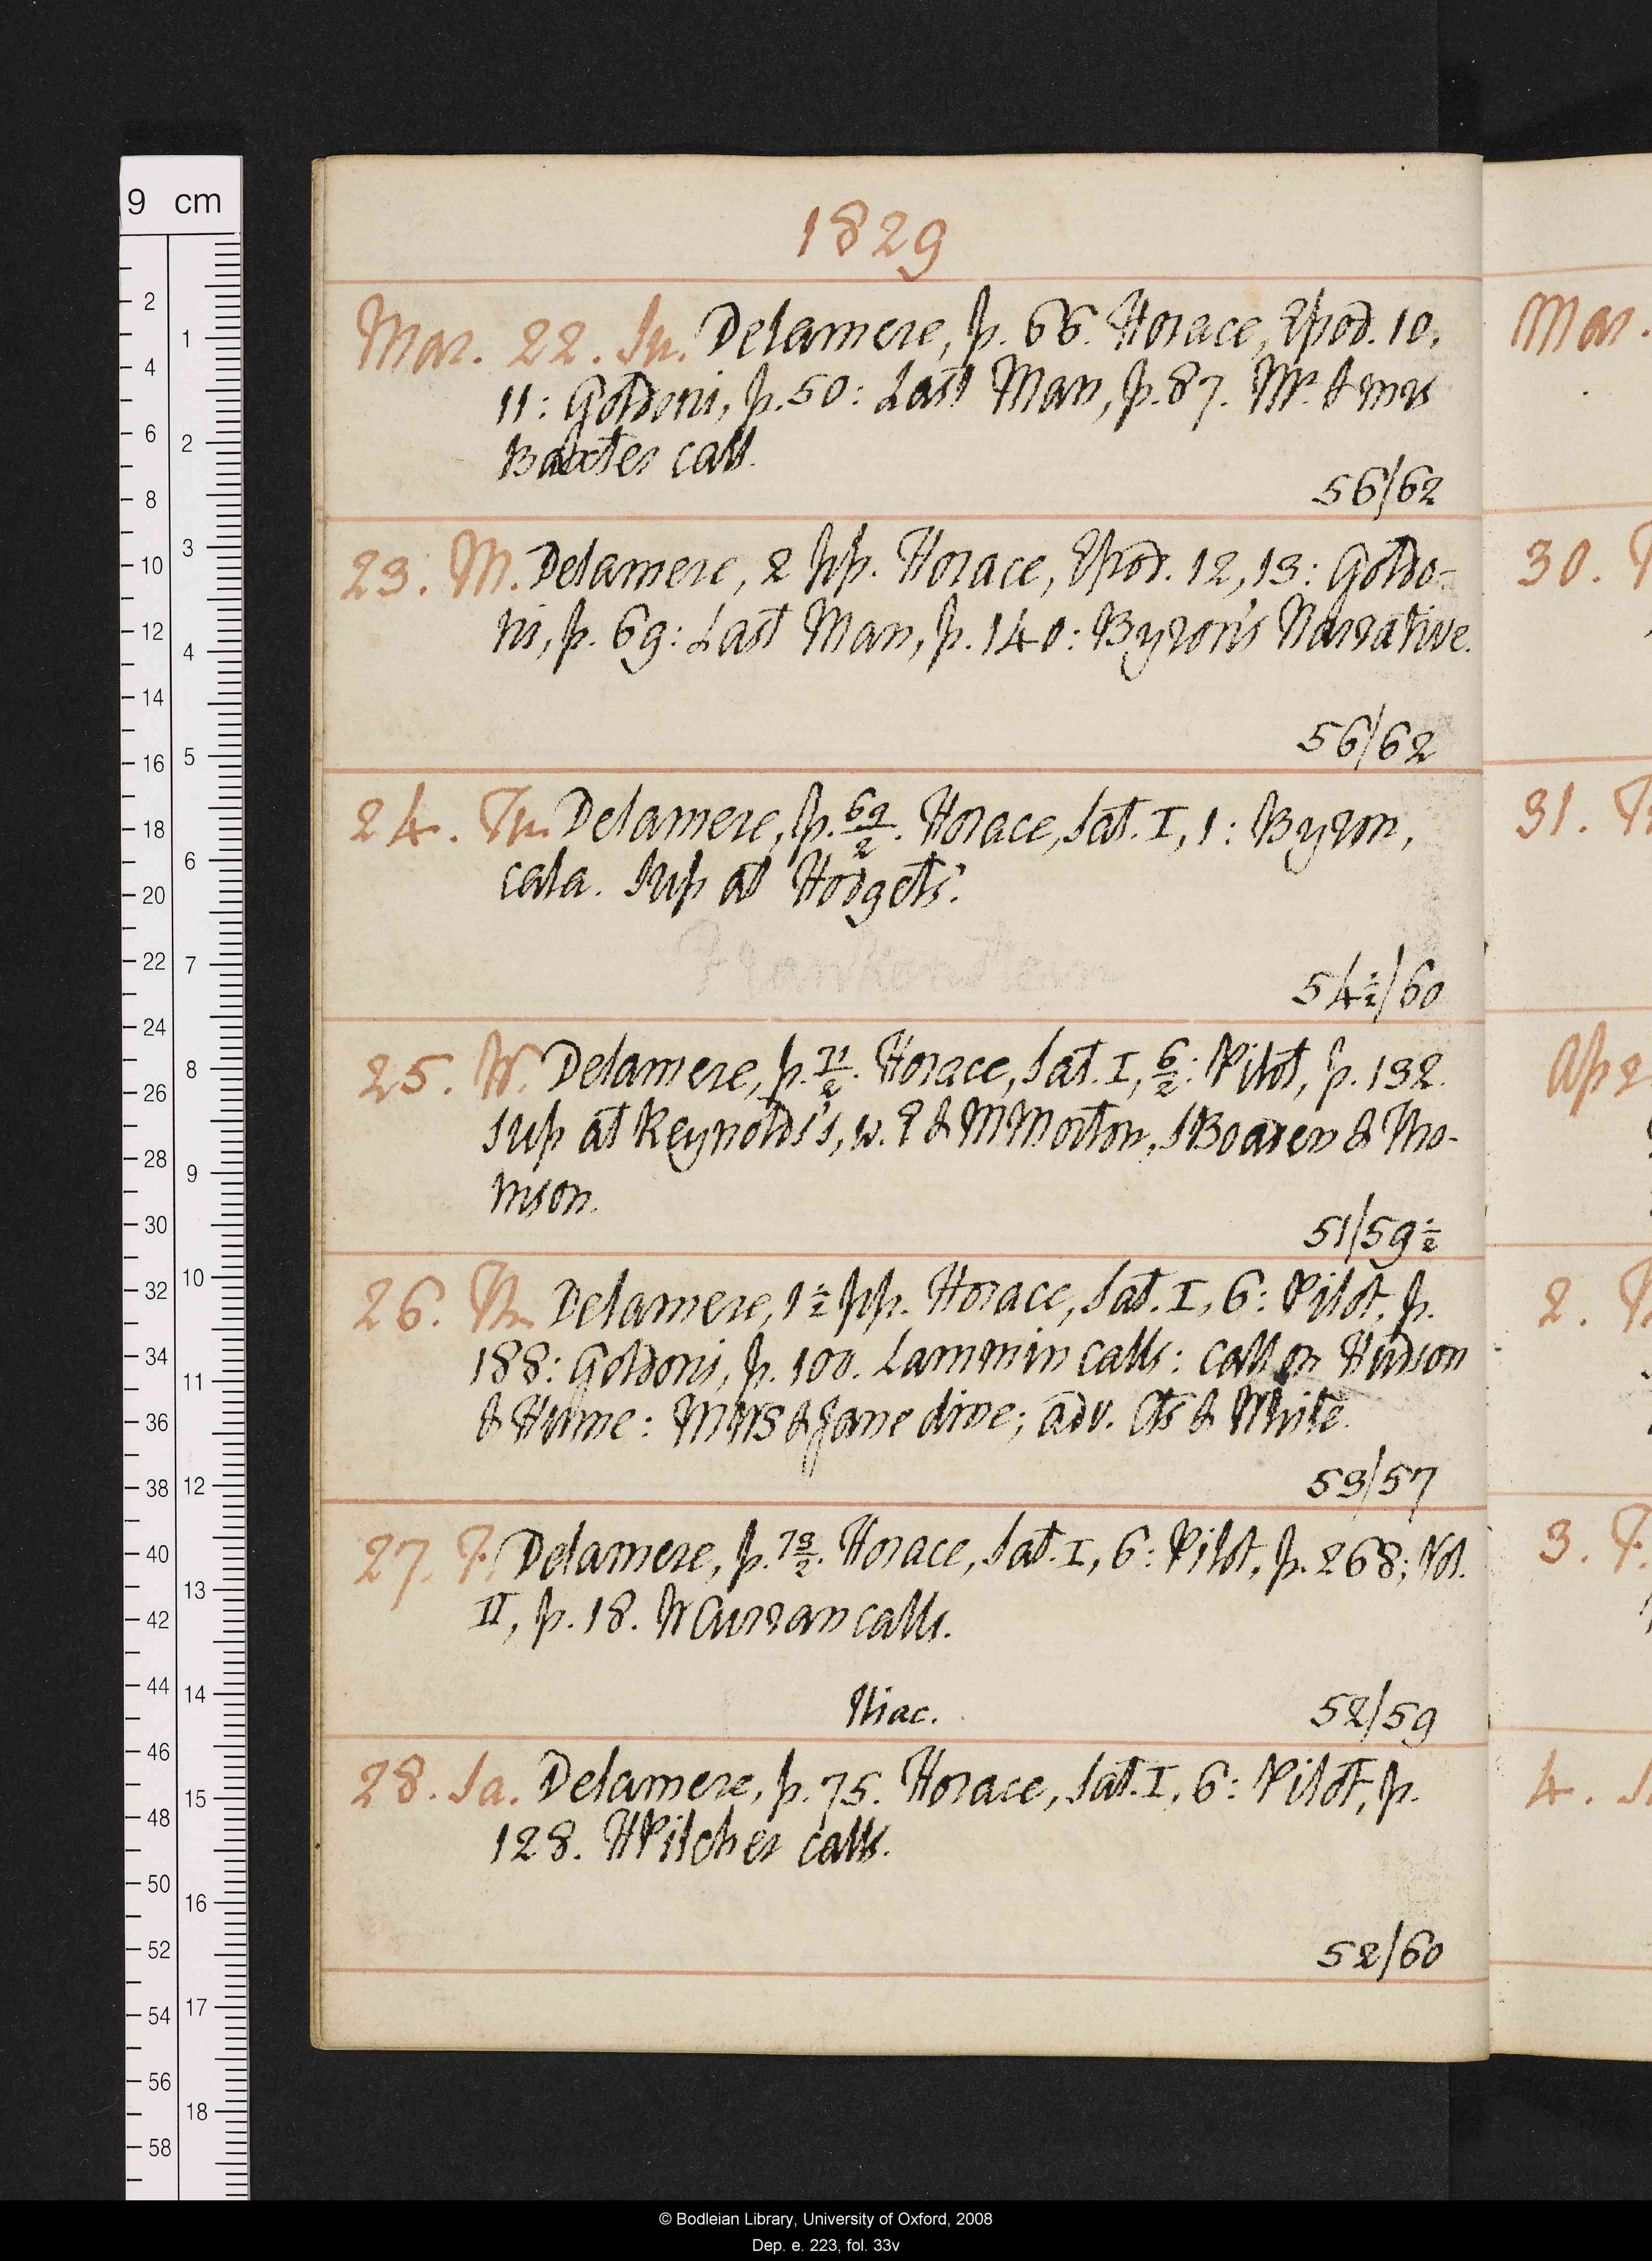 1829
Mar. 22. Su. Delamere, p. 66. Horace, Epod. 10,
11: Goldoni, p. 50: Last Man, p. 87. Mr. & mrs
Baxter call.
56/62
23. M. Delamere, 2 pp. Horace, Epod. 12, 13: Goldo-
ni, p. 69: Last Man, p. 140: Byron's Narrative.
56/62
24. Tu. Delamere, p. 69/2. Horace, Sat. I, 1: Byron,
cala. Sup at Hodgets'.
Frankenstein
54½/60
25. W. Delamere, p. 71/2. Horace, Sat. I, 6/2: Pilot, p. 132.
Sup at Reynolds's, w. E & M Morton, S Boaden & Tho-
mson.
51/59½
26. Th. Delamere, 1½ pp. Horace, Sat. I, 6: Pilot, p.
188: Goldoni, p. 100. Lammin calls: call on Hudson
& Hume: MWS & Jane dine; adv. Cts & White.
53/57
27. F. Delamere, p. 73/2. Horace, Sat. I, 6: Pilot, p. 268; Vol.
II, p. 18. W Curran calls.
Iliac.
52/59
28. Sa. Delamere, p. 75. Horace, Sat. I, 6: Pilot, p.
128. H Pilcher calls.
52/60
Mar.
30.
31.
Ap 2
2.
3. F.
4.
9 cm
2 4 6 8 10 12 14 16 18 20 22 24 26 28 30 32 34 36 38 40 42 44 46 48 50 52 54 56 58
1 2 3 4 5 6 7 8 9 10 11 12 13 14 15 16 17 18
© Bodleian Library, University of Oxford, 2008
Dep. e. 223, fol. 33v